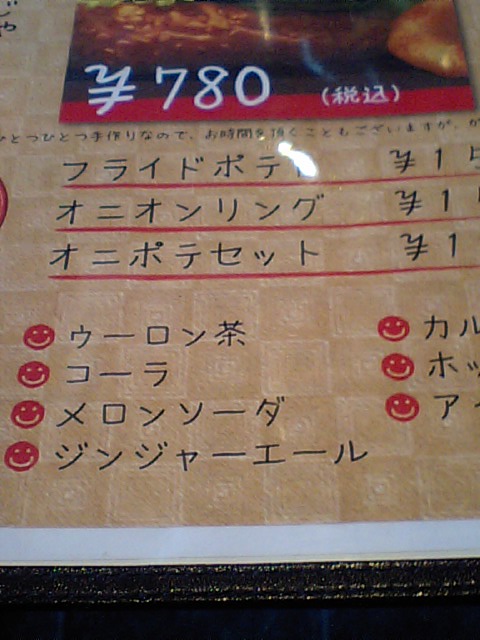 じゃ
¥780 (税込)
ひとつひとつ手作りなので、お時間を頂くこともございますが、
フライドポテト ¥15
オニオンリング ¥1
オニポテセット ¥1
ウーロン茶 カル
コーラ ホッ
メロンソーダ アイ
ジンジャーエール